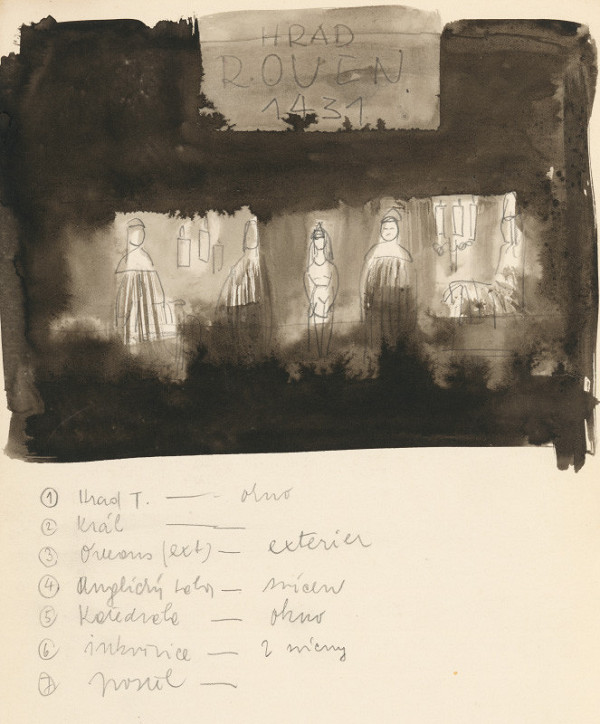 HRAD
ROUEN
1431
① Hrad T. — okno
② Král —
③ Orleans (ext) — exterier
④ Anglický — svícen
⑤ Katedrala — okno
⑥ inkvizice — 2 svícny
⑦ —